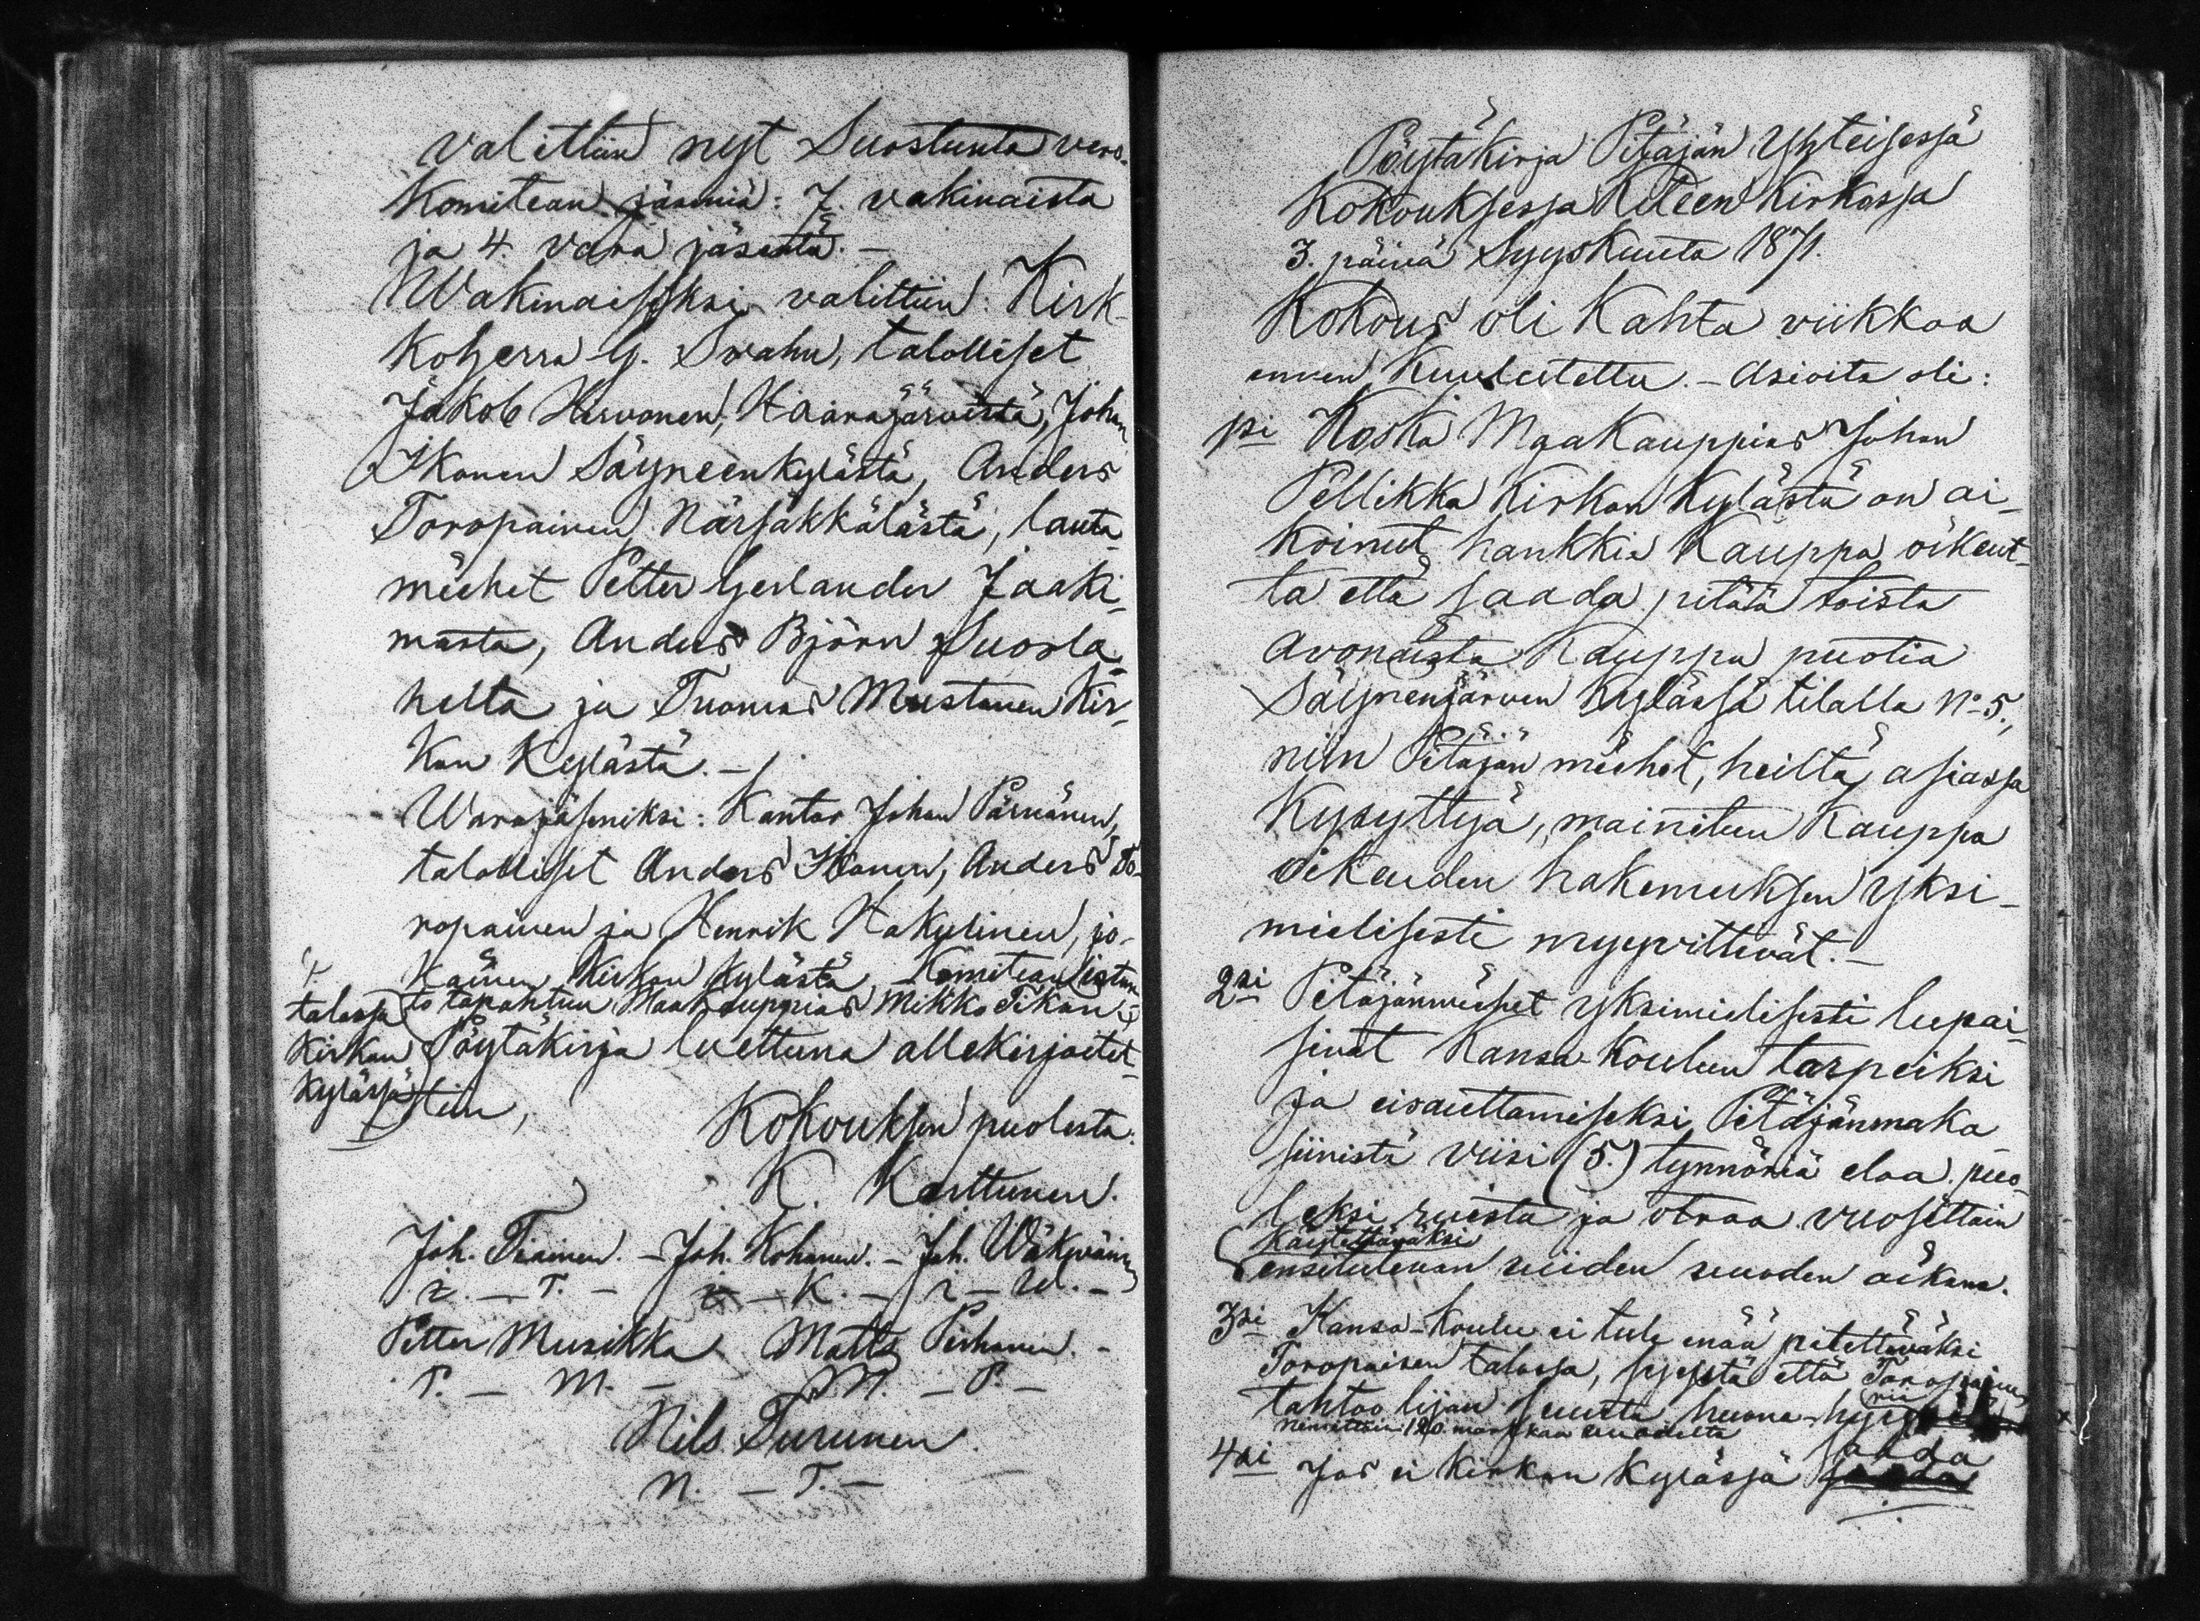 valittiin nyt Suostunta vero-
Komitean jäseniä: 7. vakinaista
ja 4. vara jäsentä. -
Wakinaiseksi valittiin: Kirk-
koherra G. Svahn, talolliset
Jakob Hirvonen, Haarajärveltä, Johan
Ikonen Säyneenkylästä, Anders
Toropainen Närsäkkälästä, lauta-
miehet Petter Gerlander Jaaki-
masta, Anders Björn Suorla-
helta ja Tuomas Mustonen Kir-
kon Kylästä. -
Warajäseniksi: Kantor Johan Pärnänen,
talolliset Anders Ikonen, Anders To-
ropainen ja Henrik Hakulinen, jo-
kainen Kirkon kylästä - Komitean istun-
to tapahtuu Maakauppias Mikko Tikan
talossa
Kirkon
Kylässä
Pöytäkirja luettuna allekirjoitet-
tiin,
Kokouksen puolesta:
K. Karttunen.
Joh. Tiainen. - Joh. Kohonen. - Joh. Wäkeväinen
i. - T. - i - K. - i - W. -
Petter Musikka Matts Pirhonen. -
P. - M. - M. - P. -
Nils Turunen.
N. - T. -
Pöytäkirja Pitäjän Yhteisessä
Kokouksessa Kiteen Kirkossa
3. päivä Syyskuuta 1871.
Kokous oli Kahta viikkoa
ennen Kuulutettu. - Asioita oli:
1si Koska Maakauppias Johan
Pellikka Kirkon Kylästä on ai-
koinut hankkia Kauppa oikeut-
ta että saada pitää toista
avonaista Kauppa puotia
Säynenjärven Kylässä tilalla No 5.,
niin Pitäjän miehet, heiltä asiassa
Kysyttyä, mainitun Kauppa
oikeuden hakemuksen yksi-
mielisesti myyvittivät. -
2si Pitäjänmiehet yksimielisesti lupai-
sivat Kansa-Koulun tarpeiksi
ja eisauttamiseksi Pitäjänmaka
siinistä viisi (5.) tynnöriä eloa puo-
leksi ruista ja otraa vuosittain
Käytettäväksi
ensitulevan viiden vuoden aikana.
3si Kansa-Koulu ei tule enää pitettäväksi
Toropaisen talossa, syystä että Toropainen
tahtoo lijan suurta huone-hyyriä
nimittäin 120 markkaa vuodelta
4si Jos ei Kirkon Kylässä saada